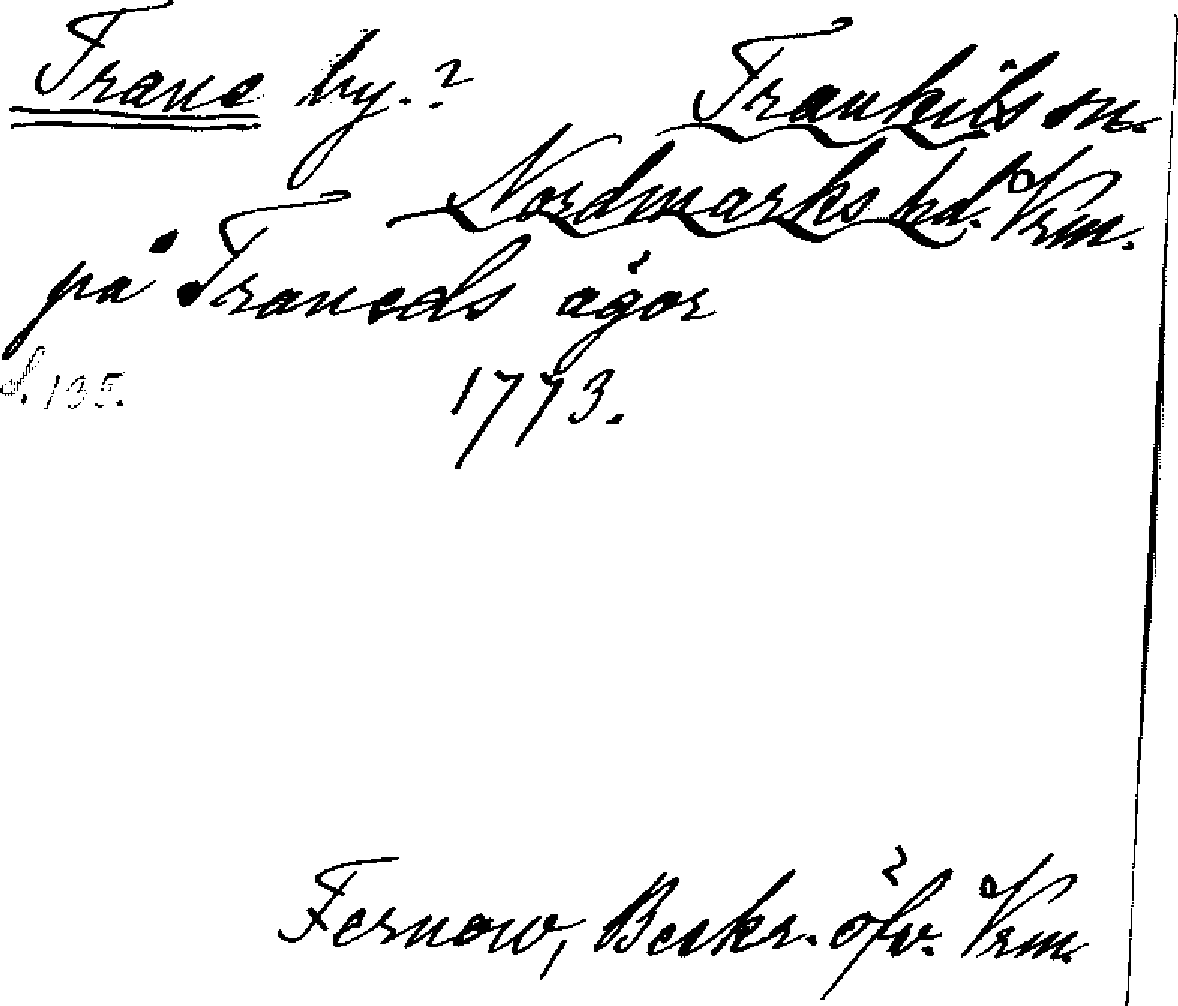 Trane by.?
Trankils sn.
Nordmarks hd. Vrm.
på Traneds ägor
S. 135.
1773.
Fernow, Beskr. öfv. Vrm.